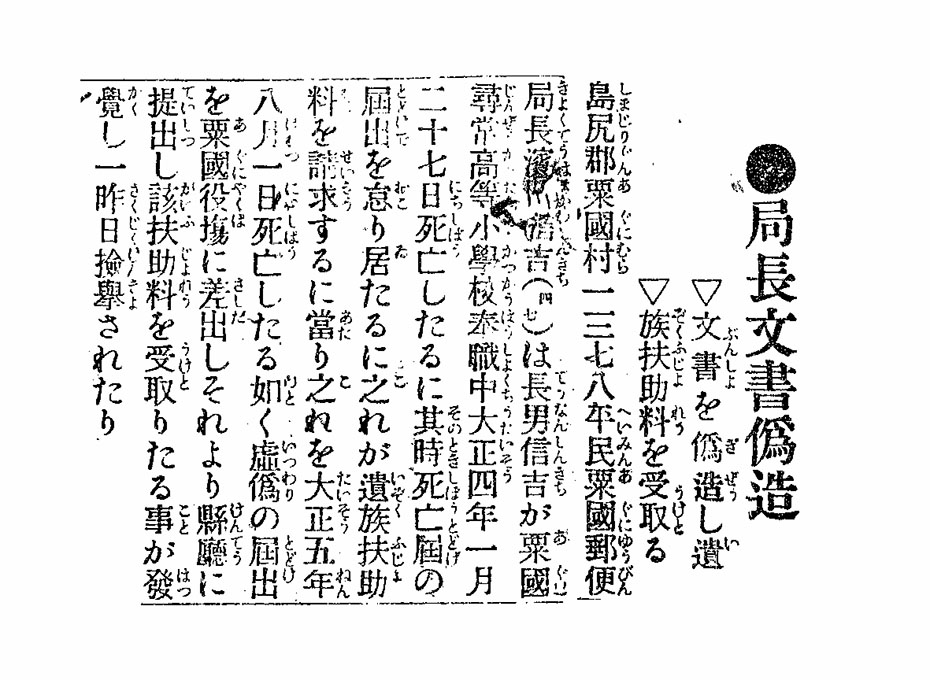 ●局長文書僞造
▽文書を僞造し遺
▽族扶助料を受取る
島尻郡粟國村一一三七八年民粟國郵便
局長濱川 吉(四七)は長男信吉が粟國
尋常高等小學校奉職中大正四年一月
二十七日死亡したるに其時死亡屆の
屆出を怠り居たるに之れが遺族扶助
料を請求するに當り之れを大正五年
八月一日死亡したる如く虛僞の屆出
を粟國役塲に差出しそれより縣廳に
提出し該扶助料を受取りたる事が發
覺し一昨日撿擧されたり